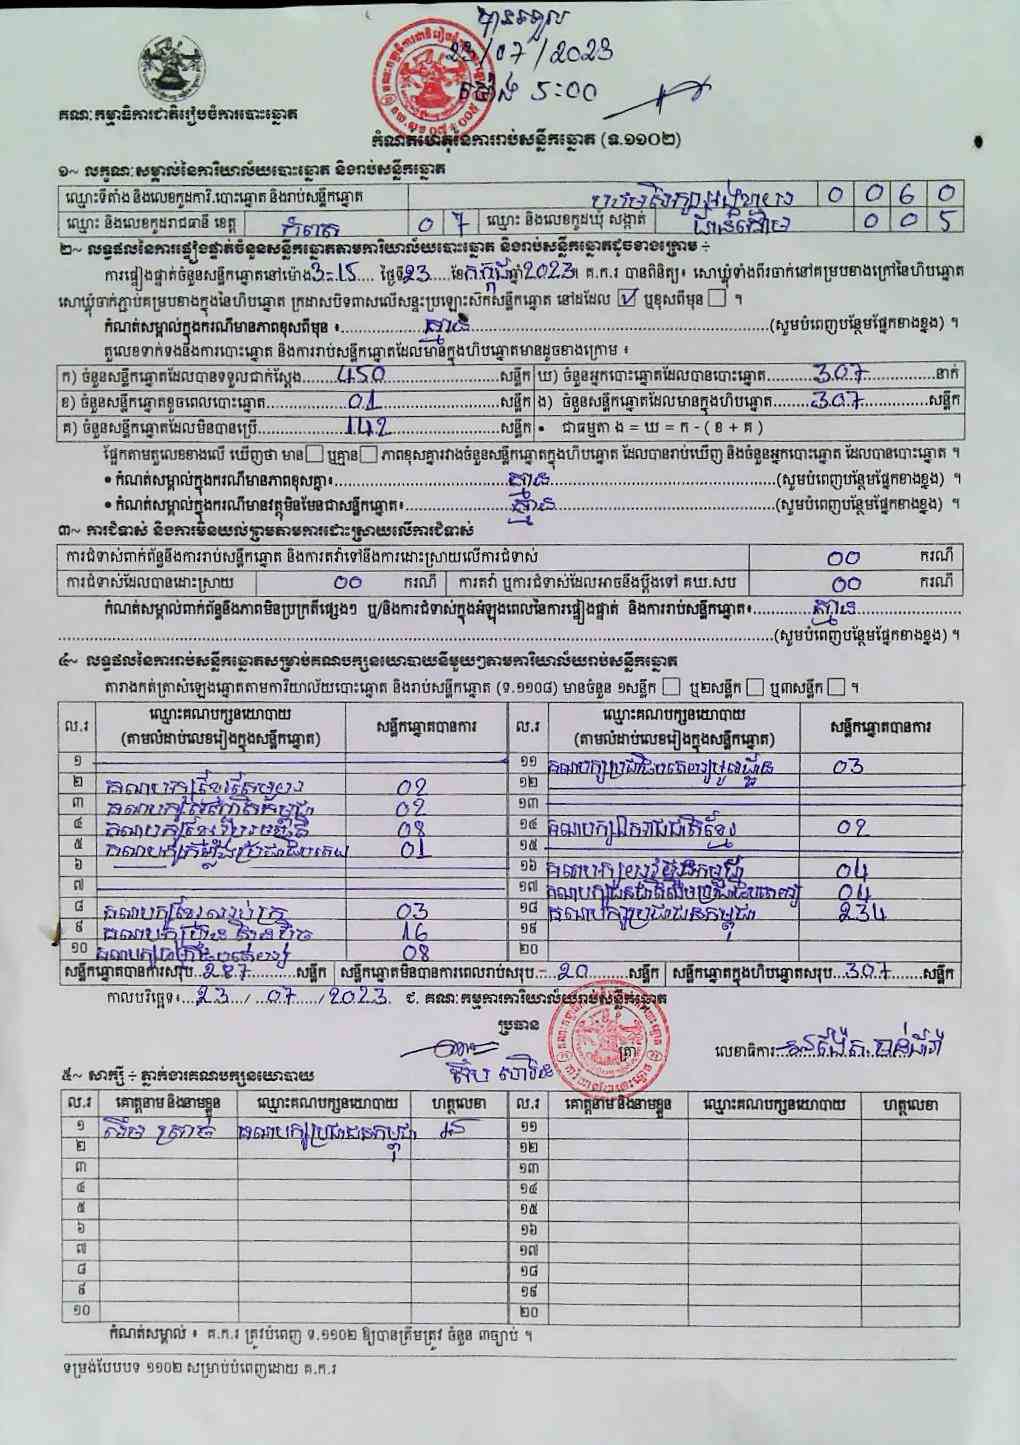 បានទទួល
23/07/2023
ម៉ោង 5:00
គណៈកម្មាធិការជាតិរៀបចំការបោះឆ្នោត
កំណត់ហេតុនៃការរាប់សន្លឹកឆ្នោត (ទ.១១០២)
១~ លក្ខណៈសម្គាល់នៃការិយាល័យបោះឆ្នោត និងរាប់សន្លឹកឆ្នោត
ឈ្មោះទីតាំង និងលេខកូដការិ.បោះឆ្នោត និងរាប់សន្លឹកឆ្នោត 0 0 6 0
ឈ្មោះ និងលេខកូដរាជធានី ខេត្ត កំពត 0 7 ឈ្មោះ និងលេខកូដឃុំ សង្កាត់ 0 0 5
២~ លទ្ធផលនៃការផ្ទៀងផ្ទាត់ចំនួនសន្លឹកឆ្នោតតាមការិយាល័យបោះឆ្នោត និងរាប់សន្លឹកឆ្នោតដូចខាងក្រោម ÷
ការផ្ទៀងផ្ទាត់ចំនួនសន្លឹកឆ្នោតនៅម៉ោង 3-15 ថ្ងៃទី 23 ខែ កក្កដា ឆ្នាំ 2023។ គ.ក.រ បានពិនិត្យ៖ សោឃ្លុំទាំងពីរចាក់នៅគម្របខាងក្រៅនៃហិបឆ្នោត
សោឃ្លុំចាក់ភ្ជាប់គម្របខាងក្នុងនៃហិបឆ្នោត ក្រដាសបិទពាសលើសន្ទះប្រឡោះស៊កសន្លឹកឆ្នោត នៅដដែល ☑ ឬខុសពីមុន ☐ ។
កំណត់សម្គាល់ក្នុងករណីមានភាពខុសពីមុន ៖ គ្មាន (សូមបំពេញបន្ថែមផ្នែកខាងខ្នង) ។
តួលេខទាក់ទងនឹងការបោះឆ្នោត និងការរាប់សន្លឹកឆ្នោតដែលមានក្នុងហិបឆ្នោតមានដូចខាងក្រោម ៖
ក) ចំនួនសន្លឹកឆ្នោតដែលបានទទួលជាក់ស្តែង 450 សន្លឹក ឃ) ចំនួនអ្នកបោះឆ្នោតដែលបានបោះឆ្នោត 307 នាក់
ខ) ចំនួនសន្លឹកឆ្នោតខូចពេលបោះឆ្នោត 01 សន្លឹក ង) ចំនួនសន្លឹកឆ្នោតដែលមានក្នុងហិបឆ្នោត 307 សន្លឹក
គ) ចំនួនសន្លឹកឆ្នោតដែលមិនបានប្រើ 142 សន្លឹក • ជាធម្មតា ង = ឃ = ក - ( ខ + គ )
ផ្អែកតាមតួលេខខាងលើ ឃើញថា មាន ☐ ឬគ្មាន ☐ ភាពខុសគ្នារវាងចំនួនសន្លឹកឆ្នោតក្នុងហិបឆ្នោត ដែលបានរាប់ឃើញ និងចំនួនអ្នកបោះឆ្នោត ដែលបានបោះឆ្នោត ។
• កំណត់សម្គាល់ក្នុងករណីមានភាពខុសគ្នា៖ គ្មាន (សូមបំពេញបន្ថែមផ្នែកខាងខ្នង) ។
• កំណត់សម្គាល់ក្នុងករណីមានវត្ថុមិនមែនជាសន្លឹកឆ្នោត៖ គ្មាន (សូមបំពេញបន្ថែមផ្នែកខាងខ្នង) ។
៣~ ការជំទាស់ និងការមិនយល់ព្រមតាមការដោះស្រាយលើការជំទាស់
ការជំទាស់ពាក់ព័ន្ធនឹងការរាប់សន្លឹកឆ្នោត និងការតវ៉ាទៅនឹងការដោះស្រាយលើការជំទាស់ 00 ករណី
ការជំទាស់ដែលបានដោះស្រាយ 00 ករណី ការតវ៉ា ឬការជំទាស់ដែលអាចនឹងប្តឹងទៅ គឃ.សប 00 ករណី
កំណត់សម្គាល់ពាក់ព័ន្ធនឹងភាពមិនប្រក្រតីផ្សេងៗ ឬ/និងការជំទាស់ក្នុងអំឡុងពេលនៃការផ្ទៀងផ្ទាត់ និងការរាប់សន្លឹកឆ្នោត៖ គ្មាន
(សូមបំពេញបន្ថែមផ្នែកខាងខ្នង) ។
៤~ លទ្ធផលនៃការរាប់សន្លឹកឆ្នោតសម្រាប់គណបក្សនយោបាយនីមួយៗតាមការិយាល័យរាប់សន្លឹកឆ្នោត
តារាងកត់ត្រាសំឡេងឆ្នោតតាមការិយាល័យបោះឆ្នោត និងរាប់សន្លឹកឆ្នោត (ទ.១១០៨) មានចំនួន ១សន្លឹក ☐ ឬ២សន្លឹក ☐ ឬ៣សន្លឹក ☐ ។
ល.រ ឈ្មោះគណបក្សនយោបាយ (តាមលំដាប់លេខរៀងក្នុងសន្លឹកឆ្នោត) សន្លឹកឆ្នោតបានការ ល.រ ឈ្មោះគណបក្សនយោបាយ (តាមលំដាប់លេខរៀងក្នុងសន្លឹកឆ្នោត) សន្លឹកឆ្នោតបានការ
១ ១១ 03
២ គណបក្សខ្មែរតែមួយ 02 ១២
៣ 02 ១៣
៤ 08 ១៤ គណបក្សឯករាជជាតិខ្មែរ 02
៥ គណបក្សកម្លាំងប្រជាធិបតេយ្យ 01 ១៥
៦ ១៦ គណបក្សយុវជនកម្ពុជា 04
៧ ១៧ គណបក្សជនជាតិដើមប្រជាធិបតេយ្យ 04
៨ 03 ១៨ គណបក្សប្រជាជនកម្ពុជា 234
៩ គណបក្សហ្វ៊ុនស៊ិនប៉ិច 16 ១៩
១០ 08 ២០
សន្លឹកឆ្នោតបានការសរុប 287 សន្លឹក សន្លឹកឆ្នោតមិនបានការពេលរាប់សរុប 20 សន្លឹក សន្លឹកឆ្នោតក្នុងហិបឆ្នោតសរុប 307 សន្លឹក
កាលបរិច្ឆេទ៖ 23 / 07 / 2023 ៩. គណៈកម្មការការិយាល័យរាប់សន្លឹកឆ្នោត
ប្រធាន
ត្រា លេខាធិការ
៥~ សាក្សី ÷ ភ្នាក់ងារគណបក្សនយោបាយ
ល.រ គោត្តនាម និងនាមខ្លួន ឈ្មោះគណបក្សនយោបាយ ហត្ថលេខា ល.រ គោត្តនាម និងនាមខ្លួន ឈ្មោះគណបក្សនយោបាយ ហត្ថលេខា
១ គណបក្សប្រជាជនកម្ពុជា ១១
២ ១២
៣ ១៣
៤ ១៤
៥ ១៥
៦ ១៦
៧ ១៧
៨ ១៨
៩ ១៩
១០ ២០
កំណត់សម្គាល់ ៖ គ.ក.រ ត្រូវបំពេញ ទ.១១០២ ឱ្យបានត្រឹមត្រូវ ចំនួន ៣ច្បាប់ ។
ទម្រង់បែបបទ ១១០២ សម្រាប់បំពេញដោយ គ.ក.រ